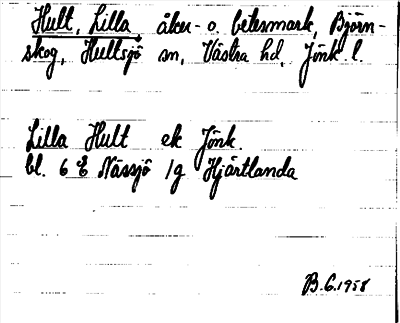 Hult, Lilla, åker- o. betesmark, Björn-
skog, Hultsjö sn, Västra hd, Jönk. l.
Lilla Hult ek Jönk.
bl. 6 E Nässjö 1g Hjärtlanda
B.G.1958